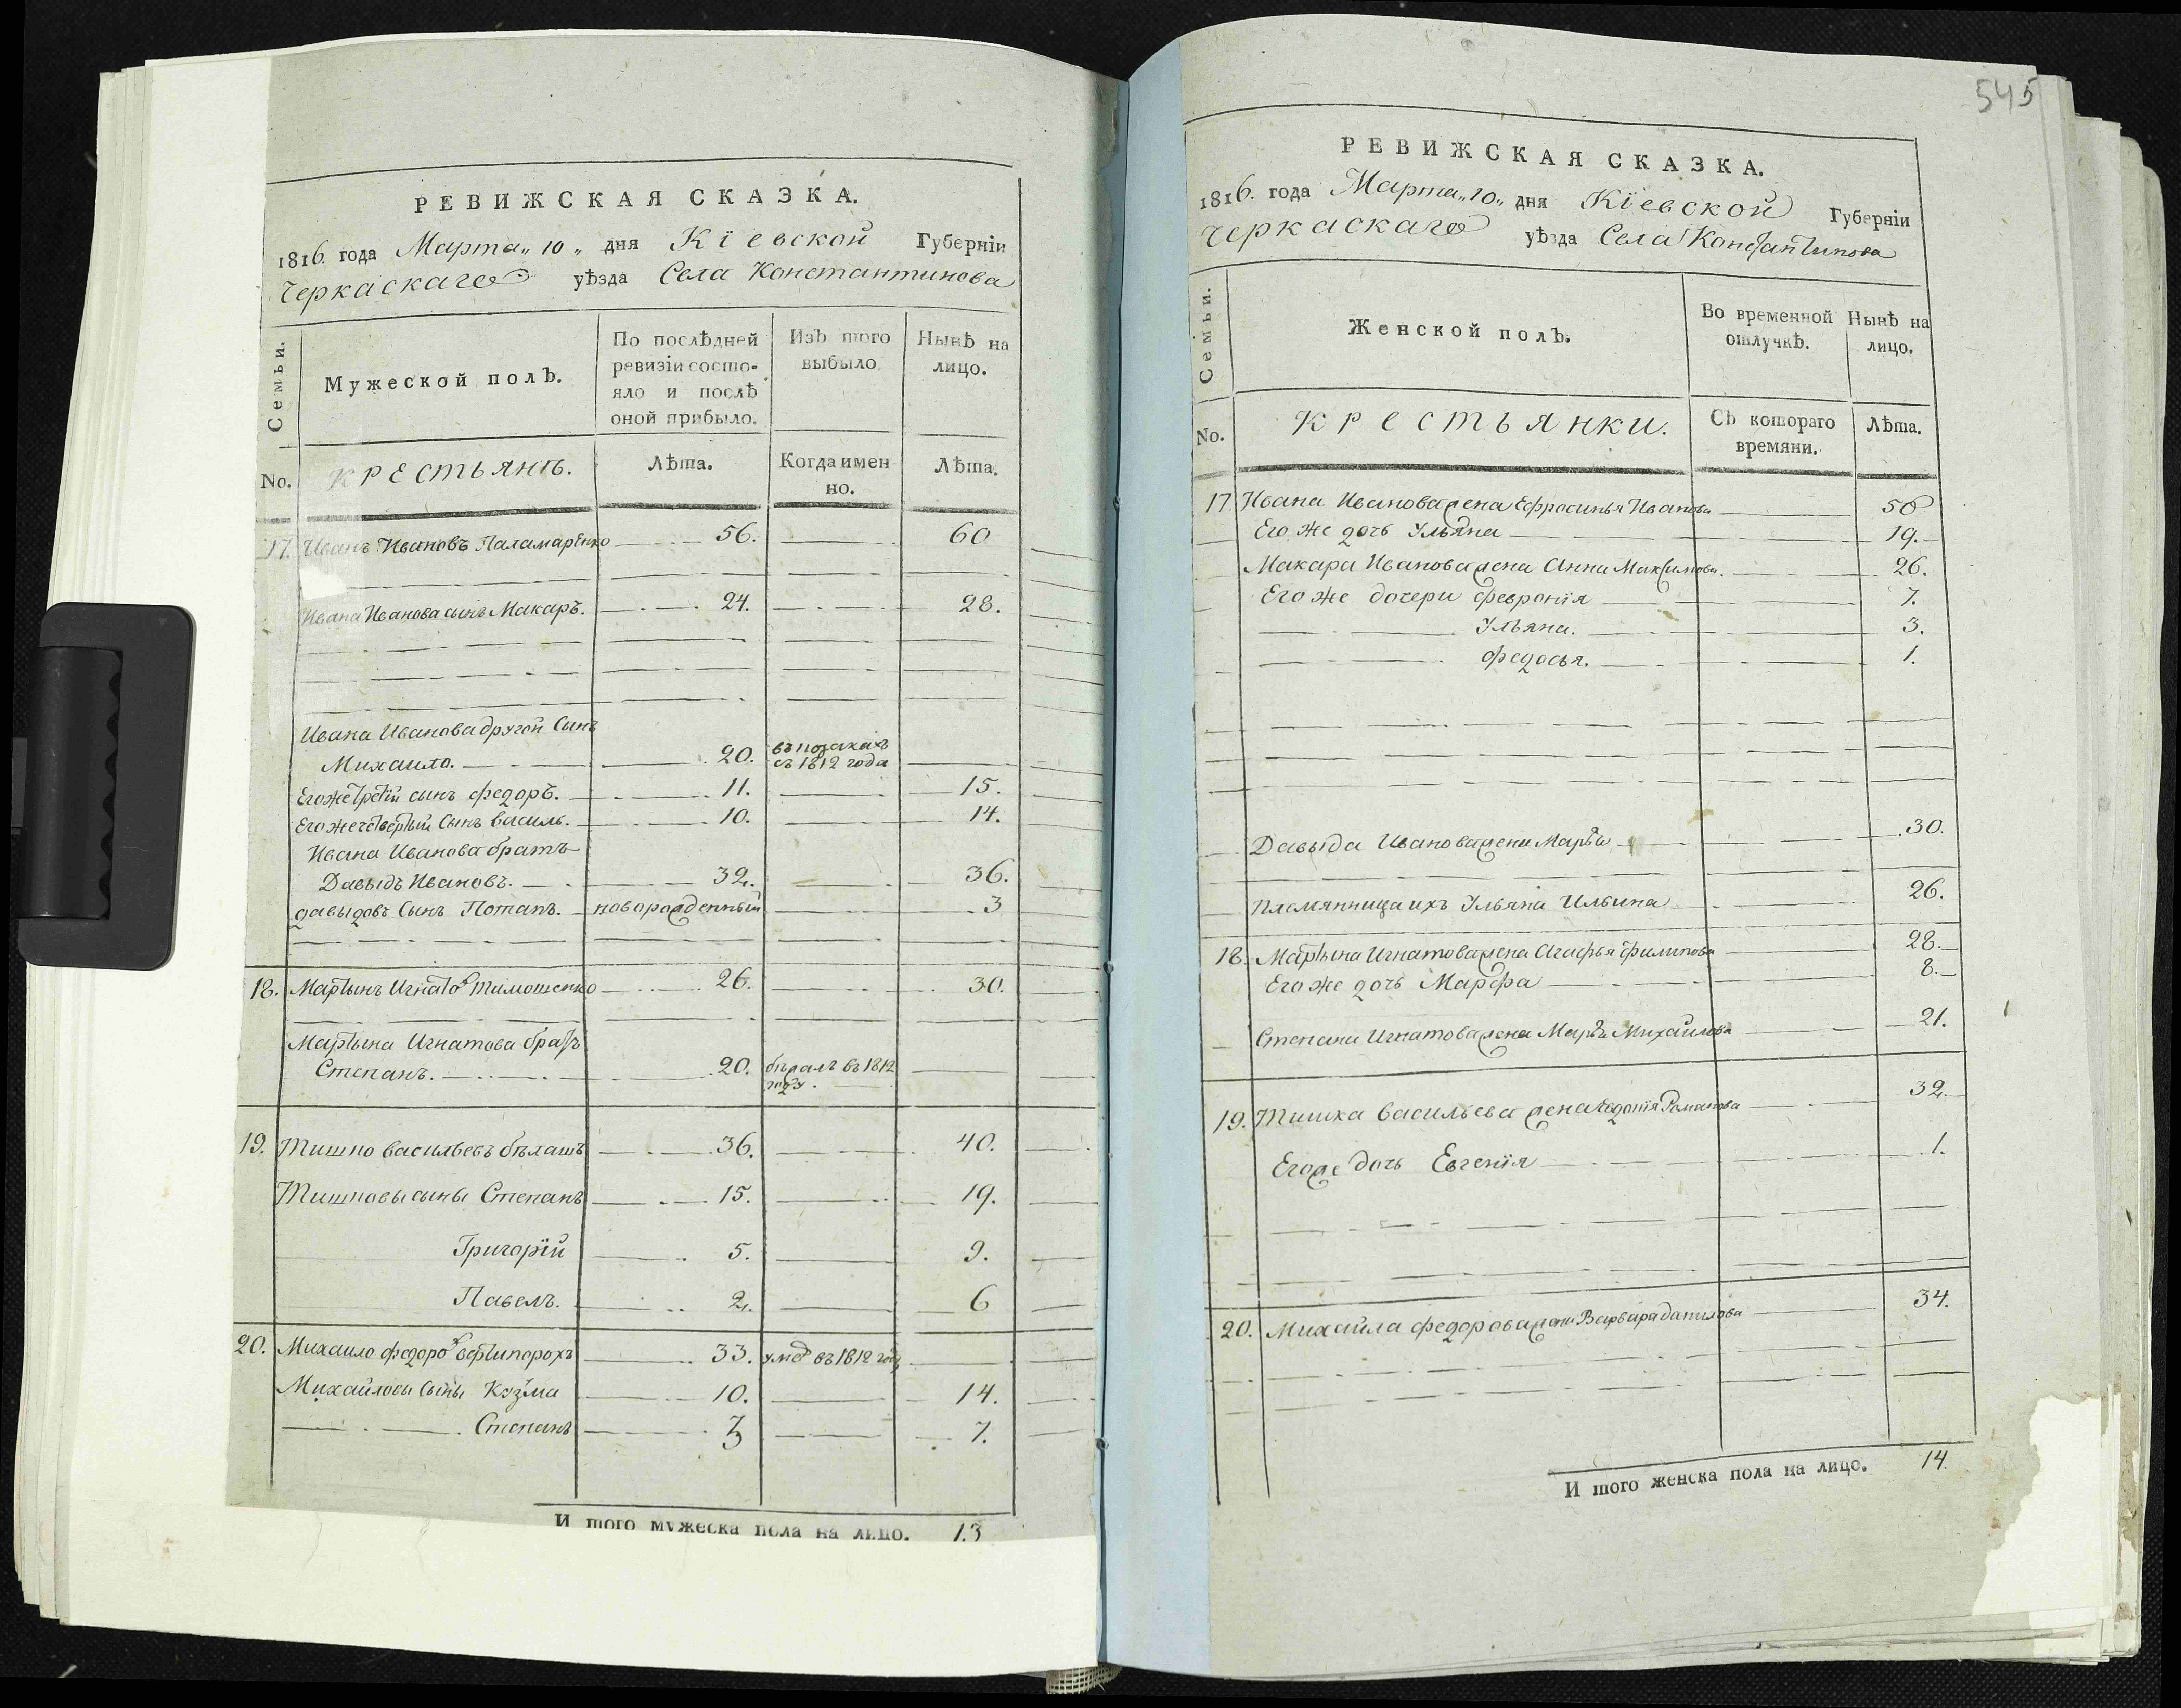 РЕВИЖСКАЯ СКАЗКА.
1816. года Марта „ 10 „ дня Кіевской Губерніи
Черкаскаго уѣзда Села Константинова
Семьи.
Мужеской полъ.
По послѣдней
ревизіи состо-
яло и послѣ
оной прибыло.
Изъ того
выбыло.
Нынѣ на
лицо.
No.
Крестьянъ.
Лѣта.
Когда имен
но.
Лѣта.
17. Иванъ Ивановъ Паламаренко 56. 60
Ивана Иванова сынъ Макаръ. 24. 28.
Ивана Иванова другой Сынъ
Михаило. 20. въ козакахъ
съ 1812 года
Егоже третій сынъ Федоръ. 11. 15.
Егоже четвертый Сынъ Василь. 10. 14.
Ивана Иванова братъ
Давыдъ Ивановъ. 32. 36.
Давыдовъ Сынъ Потапъ. новорожденный 3
18. Мартынъ Игнатовъ Тимошенко 26. 30.
Мартына Игнатова братъ
Степанъ. 20. бѣжалъ въ 1812
году.
19. Тишко Васильевъ Бѣлашъ 36. 40.
Тишковы сыны Степанъ 15. 19.
Григорїй 5. 9.
Павелъ. 2. 6
20. Михаило Федоровъ Вертипорохъ 33. умеръ въ 1812 году
Михайловы Сыны Кузма 10. 14.
Степанъ 3 7.
И того мужеска пола на лицо. 13
545
РЕВИЖСКАЯ СКАЗКА.
1816. года Марта „ 10 „ дня Кїевской Губерніи
Черкаскаго уѣзда Села Константинова
Семьи.
Женской полъ.
Во временной
отлучкѣ.
Нынѣ на
лицо.
No.
Крестьянки.
Съ котораго
времяни.
Лѣта.
17. Ивана Иванова жена Ефросинья Иванова 50
Его же дочь Ульяна 19.
Макара Иванова жена Анна Максимова. 26.
Его же дочери Февронїя 7.
Ульяна. 3.
Федосья. 1.
Давыда Иванова жена Марья 30.
Племянница ихъ Ульяна Ильина 26.
18. Мартына Игнатова жена Агафья Филипова 28.
Его же дочь Марфа 8.
Степана Игнатова жена Марья Михайлова 21.
19. Тишка Васильева жена Романова 32.
Егоже дочь Евгенїя 1.
20. Михайла Федорова жена Варвара Данилова 34.
И того женска пола на лицо. 14.